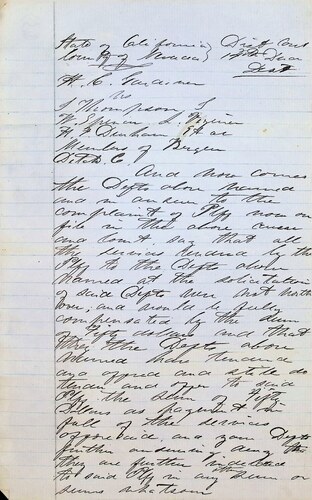 State of California } Dist Court
County of Nevada } 14th Judi
Dist
H. C. Gardiner
vs
J Thompson, J
W. Spencer L
H. F. Denham et al
Members of
And now comes
the Defts above named
and in answer to the
complaint of Plff now on
file in the above cause
and Court, say that all
the services rendered by the
Plff to the Defts above
named at the solicitation
of said Defts were not worth
over, and would be fully
compensated by the sum
of Fifty dollars and that
they the Defts above
named have tendered
and offered and still do
tender and offer to said
Plff the sum of Fifty
Dollars as payment in
full of the services
aforesaid, and your Defts
further answering deny that
they are further indebted
to said Plff in any sum or
sums whatsoever